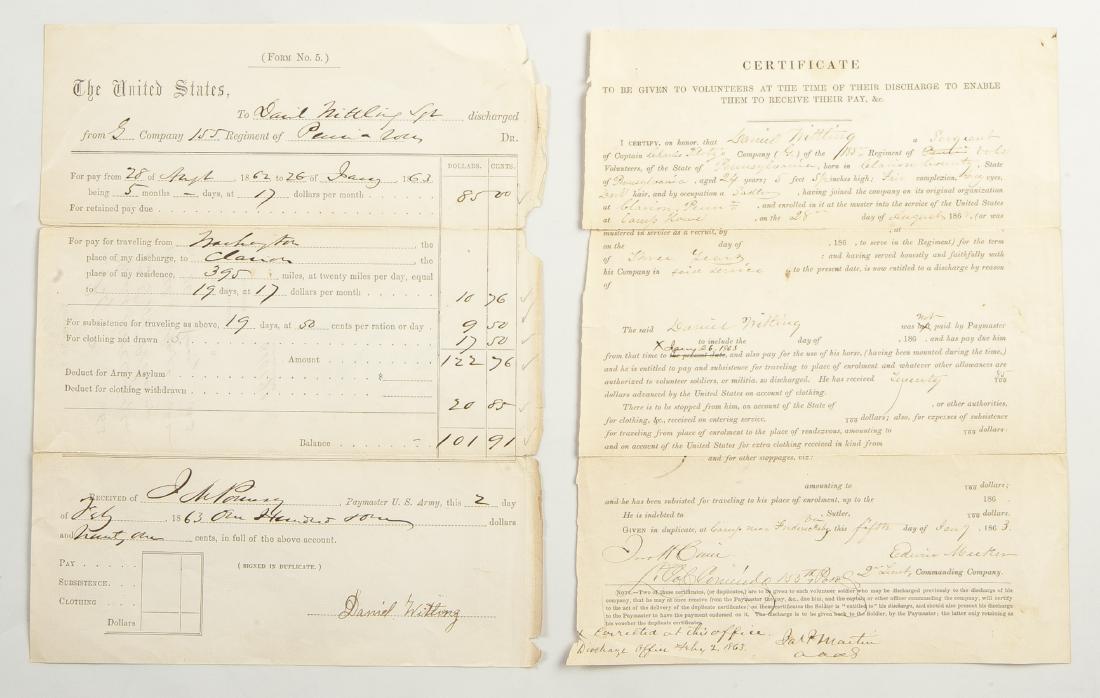 (FORM NO. 5.)
The United States,
To Daniel Wittling Sgt discharged
from G Company 155 Regiment of Penn a Vols DR.
DOLLARS. CENTS.
For pay from 28 of 1862 to 26 of 1863
being 5 months — days, at 17 dollars per month 85 00
For retained pay due
For pay for traveling from Washington the
place of my discharge, to Clarion the
place of my residence, 395 miles, at twenty miles per day, equal
to 19 days, at 17 dollars per month 10 76
For subsistence for traveling as above, 19 days, at 50 cents per ration or day 9 50
For clothing not drawn 17 50
Amount 122 76
Deduct for Army Asylum $
Deduct for clothing withdrawn 20 85
Balance 101 91
RECEIVED of Paymaster U. S. Army, this 2 day
of Feby 1863 One Hundred & one dollars
and Ninety one cents, in full of the above account.
PAY
SUBSISTENCE.
CLOTHING
Dollars
(SIGNED IN DUPLICATE.)
Daniel Wittling
CERTIFICATE
TO BE GIVEN TO VOLUNTEERS AT THE TIME OF THEIR DISCHARGE TO ENABLE
THEM TO RECEIVE THEIR PAY, &c.
I CERTIFY, on honor, that Daniel Wittling a Sergeant
of Captain Company (G,) of the 155 Regiment of Vols
Volunteers, of the State of Pennsylvania, born in Clarion County, State
of Pennsylvania, aged 24 years; 5 feet inches high; complexion, eyes,
hair, and by occupation a , having joined the company on its original organization
at Clarion Penn a, and enrolled in it at the muster into the service of the United States
at Camp Howe, on the 28 day of August, 186 , (or was
mustered in service as a recruit, by , at
on the day of , 186 , to serve in the Regiment,) for the term
of Three Years : and having served honestly and faithfully with
his Company in to the present date, is now entitled to a discharge by reason
of
The said Daniel Wittling was not paid by Paymaster
to include the day of , 186 , and has pay due him
X Jany 26, 1863
from that time to the present date, and also pay for the use of his horse, (having been mounted during the time,)
and he is entitled to pay and subsistence for traveling to place of enrolment and whatever other allowances are
authorized to volunteer soldiers, or militia, so discharged. He has received Twenty 85/100
dollars advanced by the United States on account of clothing.
There is to be stopped from him, on account of the State of , or other authorities,
for clothing, &c., received on entering service. /100 dollars; also, for expenses of subsistence
for traveling from place of enrolment to the place of rendezvous, amounting to /100 dollars:
and on account of the United States for extra clothing received in kind from
and for other stoppages, viz:
amounting to /100 dollars;
and he has been subsisted for traveling to his place of enrolment, up to the 186 .
He is indebted to , Sutler, /100 dollars.
GIVEN in duplicate, at Camp near Fredricksbg Va this fifth day of Jany, 1863.
Edwin
2nd Lieut, Commanding Company.
Lt Col Comindg 155th
NOTE.—Two of these certificates, (or duplicates,) are to be given to each volunteer soldier who may be discharged previously to the discharge of his
company, that he may at once receive from the Paymaster the pay, &c., due him; and the captain or other officer commanding the company, will certify
to the act of the delivery of the duplicate certificates; on these certificates the Soldier is "entitled to" his discharge, and should also present his discharge
to the Paymaster to have the payment endorsed on it. The discharge is to be given back to the Soldier, by the Paymaster; the latter only retaining as
his voucher the duplicate certificates.
X Corrected at this office.
Discharge Office Feby 2, 1863.
Jas P Martin